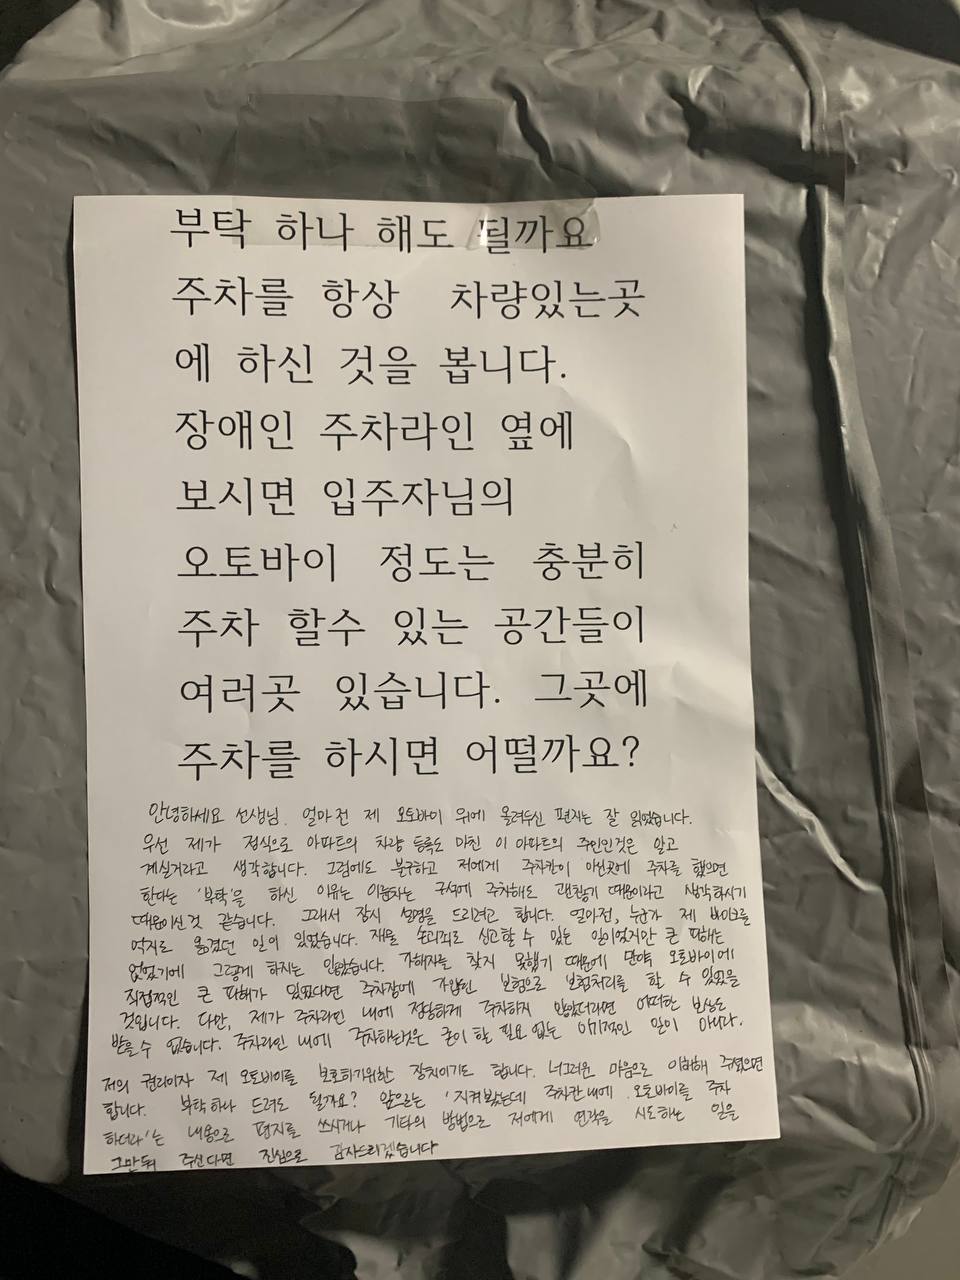 부탁 하나 해도 될까요
주차를 항상 차량있는곳
에 하신 것을 봅니다.
장애인 주차라인 옆에
보시면 입주자님의
오토바이 정도는 충분히
주차 할수 있는 공간들이
여러곳 있습니다. 그곳에
주차를 하시면 어떨까요?
안녕하세요 선생님. 얼마전 제 오토바이 위에 올려두신 편지는 잘 읽었습니다.
우선 제가 정식으로 아파트의 차량 등록도 마친 이 아파트의 주인인것은 알고
계실거라고 생각합니다. 그럼에도 불구하고 저에게 주차칸이 아닌곳에 주차를 했으면
한다는 '부탁'을 하신 이유는 이륜차는 구석에 주차해도 괜찮기 때문이라고 생각하시기
때문이신것 같습니다. 그래서 잠시 설명을 드리려고 합니다. 얼마전, 누군가 제 바이크를
억지로 옮겼던 일이 있었습니다. 재물 손괴죄로 신고할 수 있는 일이었지만 큰 피해는
없었기에 그렇게 하지는 않았습니다. 가해자를 찾지 못했기 때문에 만약 오토바이에
직접적인 큰 피해가 있었다면 주차장에 가입된 보험으로 보험처리를 할 수 있었을
것입니다. 다만, 제가 주차라인 내에 정당하게 주차하지 않았더라면 어떠한 보상도
받을 수 없습니다. 주차라인 내에 주차하는것은 굳이 할 필요 없는 이기적인 일이 아니라.
저의 권리이자 제 오토바이를 보호하기위한 장치이기도 합니다. 너그러운 마음으로 이해해 주셨으면
합니다. 부탁하나 드려도 될까요? 앞으로는 '지켜봤는데 주차칸내에 오토바이를 주차
하더라'는 내용으로 편지를 쓰시거나 기타의 방법으로 저에게 연락을 시도하는 일을
그만둬 주신다면 진심으로 감사드리겠습니다